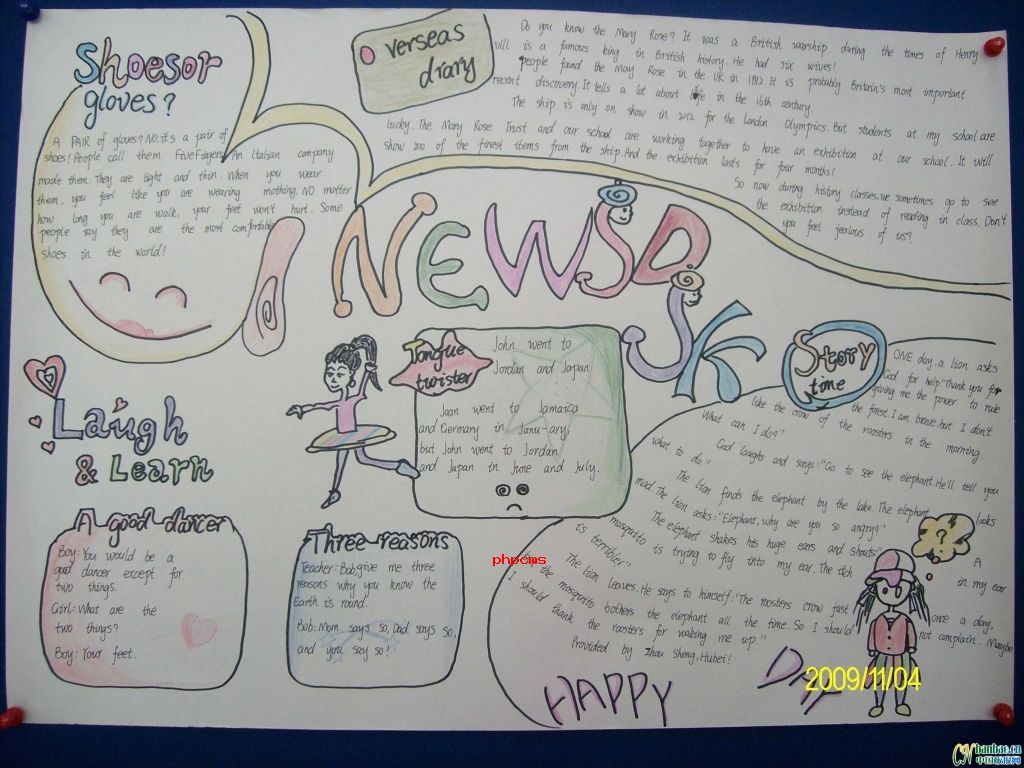 Shoesor
gloves?
A PAIR of gloves? NO. it's a pair of
shoes! People call them FiveFingers. An Italian company
made them. They are light and thin. When you wear
them, you feel like you are wearing nothing. NO matter
how long you are walk, your feet won't hurt. Some
people say they are the most comfortable
shoes in the world!
verseas
diary
Do you know the Mary Rose? It was a British warship during the times of Henry
VIII is a famous king in British history. He had six wives!
people found the Mary Rose in the UK in 1982. It is probably Britain's most important
recent discovery. It tells a lot about life in the 16th century.
The ship is only on show in 2012 for the London Olympics. But students at my school are
lucky. The Mary Rose Trust and our school are working together to have an exhibition at our school. It will
show 200 of the finest items from the ship. And the exhibition lasts for four months!
So now during history classes, we sometimes go to see
the exhibition instead of reading in class. Don't
you feel jealous of us?
NEWSDSK
Laugh
& Learn
Tongue
twister
John went to
Jordan and Japan
Joan went to Jamaica
and Germany in Janu-ary,
but John went to Jordan
and Japan in June and July.
A good dancer
Boy: You would be a
good dancer except for
two things.
Girl: What are the
two things?
Boy: Your feet.
Three reasons
Teacher: Bob, give me three
reasons why you know the
Earth is round.
Bob: Mom says so, Dad says so,
and you say so!
Story
time
ONE day, a lion asks
God for help. "Thank you for
giving me the power to rule
the forest. I am brave but I don't
like the crow of the roosters in the morning.
What can I do?"
God laughs and says: "Go to see the elephant. He'll tell you
what to do."
The lion finds the elephant by the lake. The elephant looks
mad. The lion asks: "Elephant, why are you so angry?"
The elephant shakes his huge ears and shouts: "A
mosquito is trying to fly into my ear. The itch in my ear
is terrible!"
The lion leaves. He says to himself: "The roosters crow just once a day,
but the mosquito bothers the elephant all the time. So I should not complain. Maybe
I should thank the roosters for waking me up."
Provided by Zhou Sheng, Hubei!
?
HAPPY
DAY
phpcms
2009/11/04
CN banbao.cn